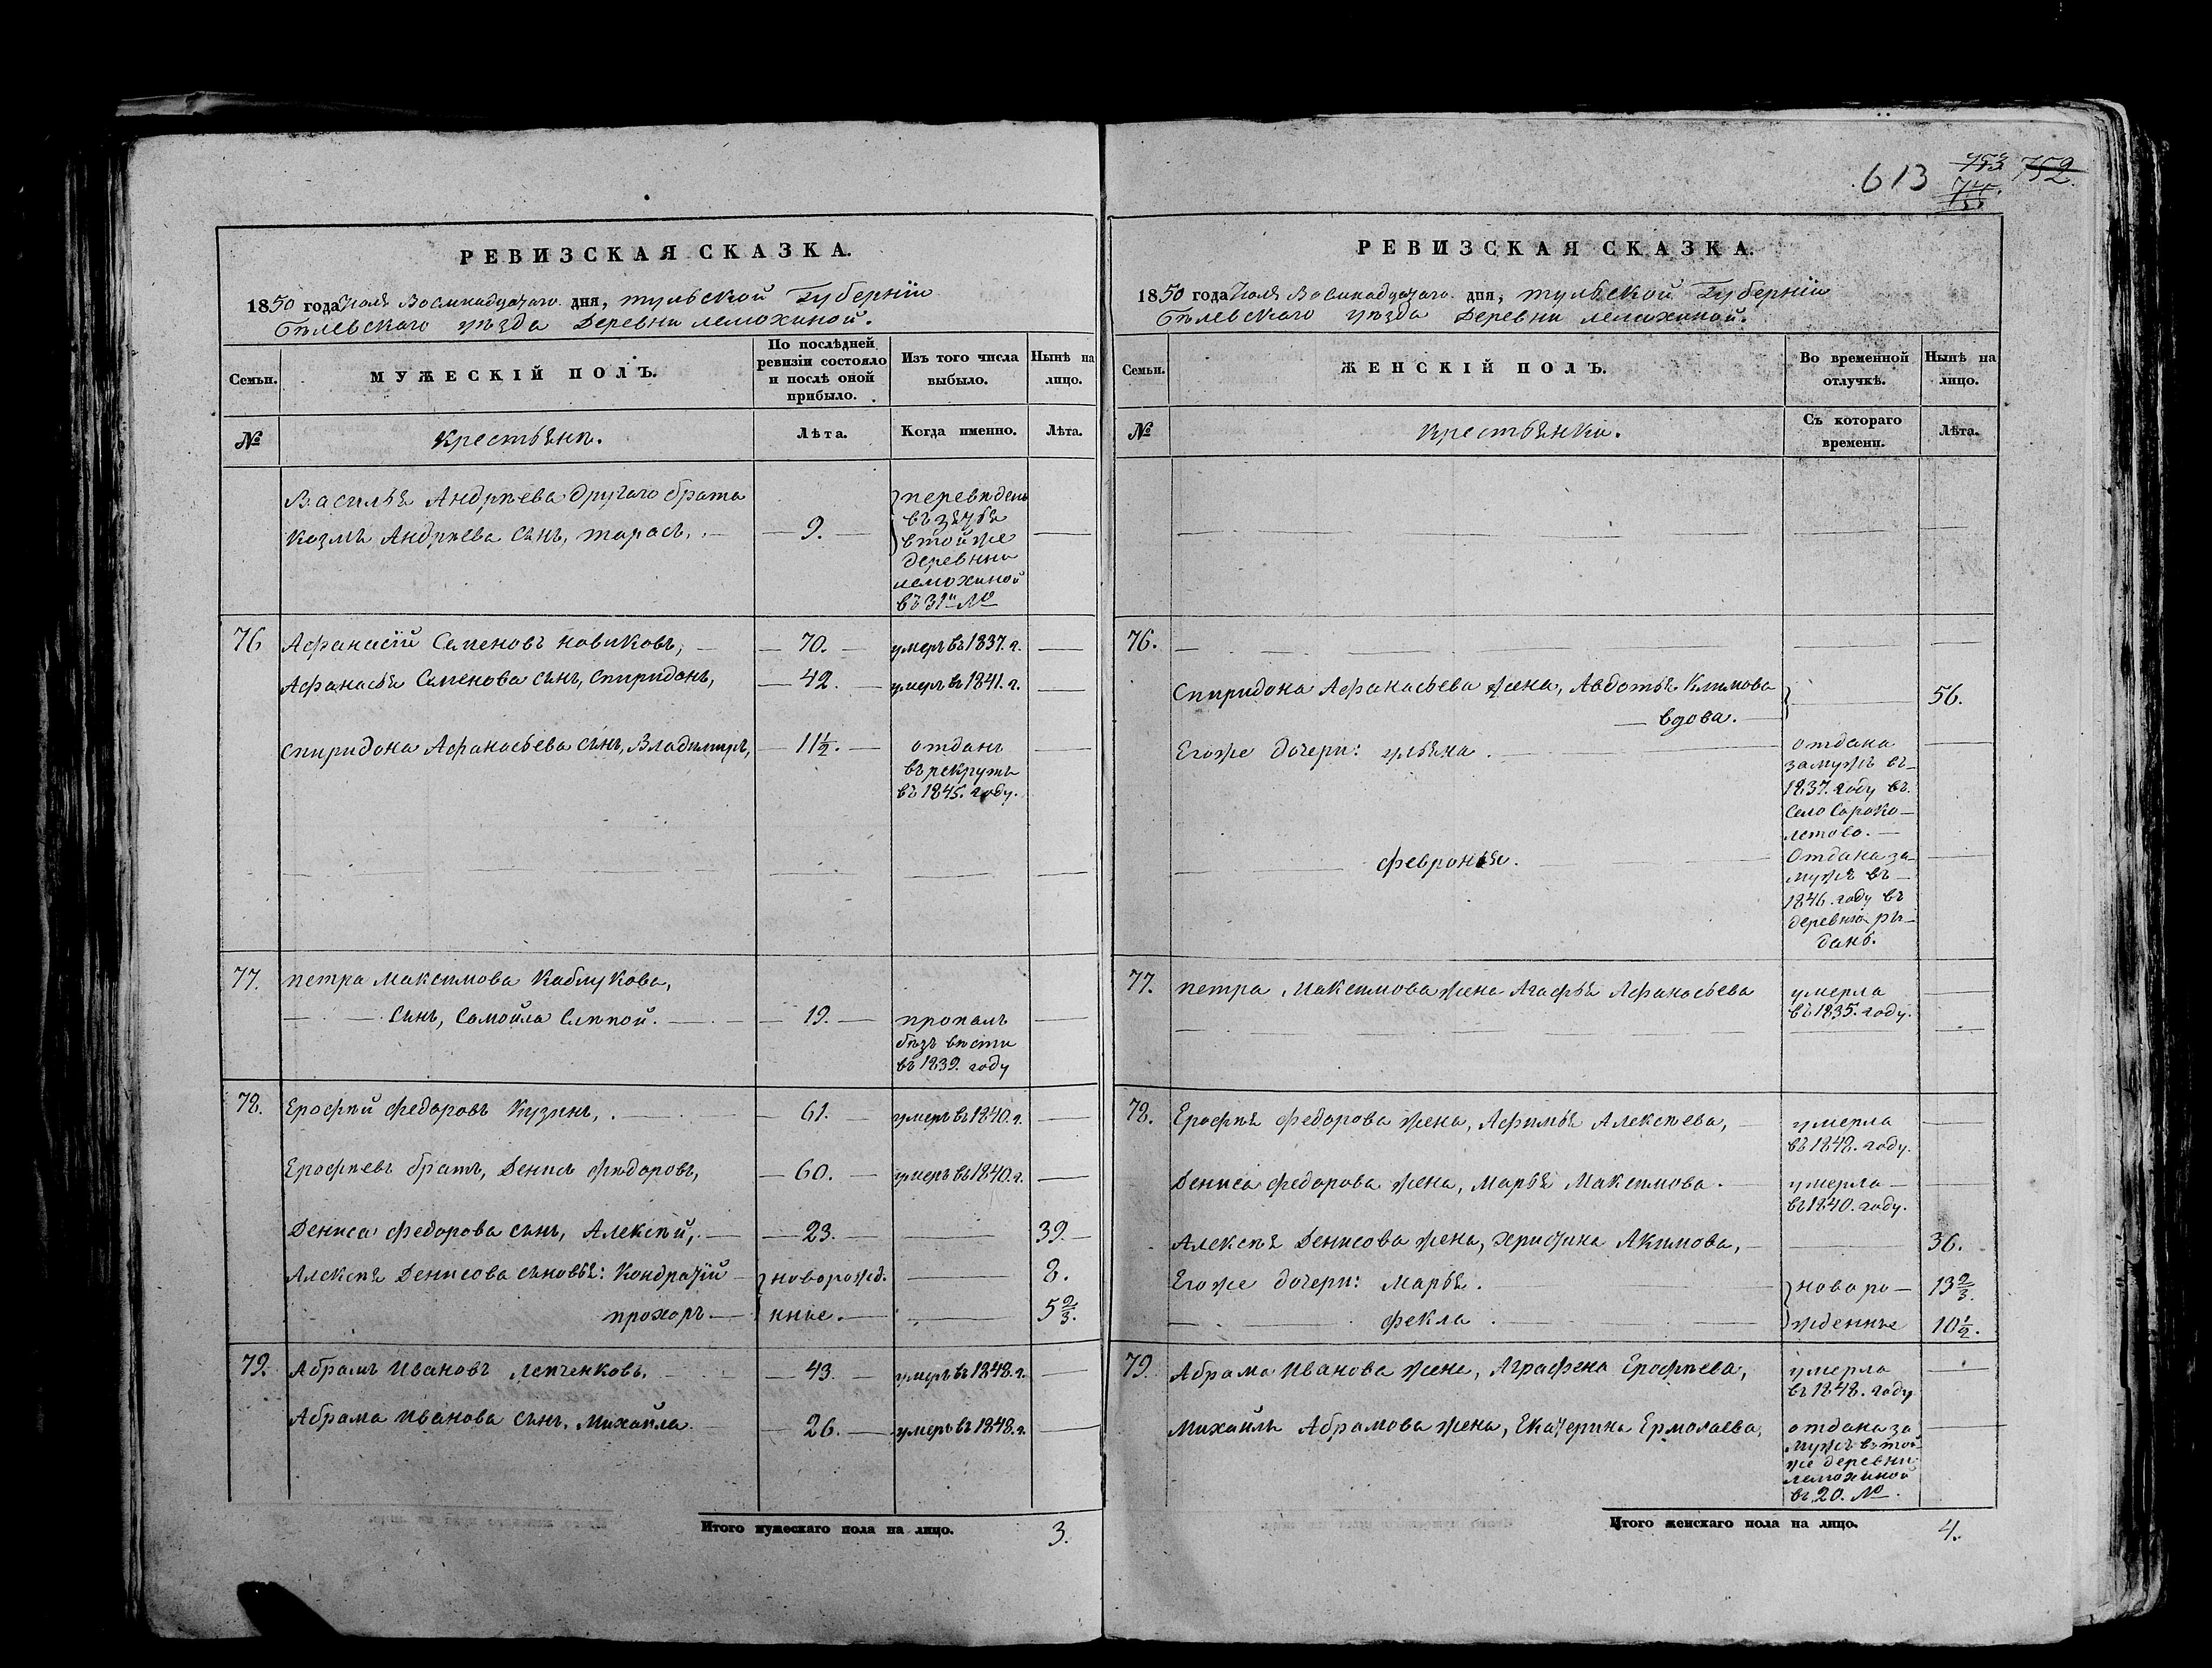 613 753 752.
74.
РЕВИЗСКАЯ СКАЗКА.
1850 года Іюля Восмнадцатаго дня, тульской Губерніи
Бѣлевскаго уѣзда Деревни лемохиной.
Семьи.
МУЖЕСКІЙ ПОЛЪ.
По послѣдней
ревизіи состояло
и послѣ оной
прибыло.
Изъ того числа
выбыло.
Нынѣ на
лицо.
№
Крестьянѣ.
Лѣта.
Когда именно.
Лѣта.
Василья Андрѣева другаго брата
Козмы Андрѣева сынъ, тарасъ, 9.
перевѣденъ
въ зятья
в той же
деревни
лемохиной
въ 31й №
76 Афанасій Семеновъ новиковъ, 70. умеръ въ 1837. г.
Афанасья Семенова сынъ, спиридонъ, 42. умеръ въ 1841. г.
спиридона Афанасьева сынъ, Владимиръ, 11½. отданъ
въ рекруты
въ 1845. году.
77. петра Максимова Каблукова,
сынъ, Самойла Слѣпой. 19. пропалъ
бѣзъ вѣсти
въ 1839. году
78. Ерофѣй федоровъ Кузинъ, 61. умеръ въ 1840. г.
Ерофѣевъ братъ, Денисъ фѣдоровъ, 60. умеръ въ 1840. г.
Дениса федорова сынъ, Алексѣй, 23. 39.
Алексѣя Денисова сыновья: Кондратій новорожд. 8.
прохоръ нные. 5⅔.
79. Абрамъ Ивановъ Лепченковъ. 43. умеръ въ 1848. г.
Абрама Иванова сынъ, Михайла. 26. умеръ въ 1848. г.
Итого мужескаго пола на лицо. 3.
РЕВИЗСКАЯ СКАЗКА.
1850 года Іюля Восмнадцатаго дня, тульской Губерніи
Бѣлевскаго уѣзда Деревни лемохиной.
Семьи.
ЖЕНСКІЙ ПОЛЪ.
Во временной
отлучкѣ.
Нынѣ на
лицо.
№
Крестьянки.
Съ котораго
времени.
Лѣта.
76.
Спиридона Афанасьева жена, Авдотья Климова 56.
вдова.
Его же дочери: ульяна. отдана
замужъ въ
1837. году въ
Село Сороко-
летово.
февронья. Отдана за-
мужъ въ
1846. году въ
деревню ры-
дань.
77. петра Максимова жена Агафья Афанасьева умерла
въ 1835. году.
78. Ерофѣя федорова жена, Афимья Алексѣева, умерла
въ 1848. году.
Дениса федорова жена, Марья Максимова. умерла
въ 1840. году.
Алексѣя Денисова жена, христина Акимова, 36.
Его же дочери: Марья. ново ро- 13⅔.
фекла жденные 10½.
79. Абрама Иванова жена, Аграфена Ерофѣева, умерла
въ 1848. году
Михайлы Абрамова жена, Екатерина Ермолаева, отдана за
мужъ в той
же деревни
лемохиной
въ 20. №
Итого женскаго пола на лицо. 4.